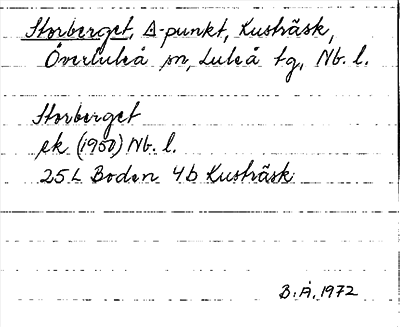 Storberget, △-punkt, Kusträsk,
Överluleå sn, Luleå tg, Nb. l.
Storberget
ek (1950) Nb. l.
25 L Boden 4b Kusträsk
B. Å. 1972